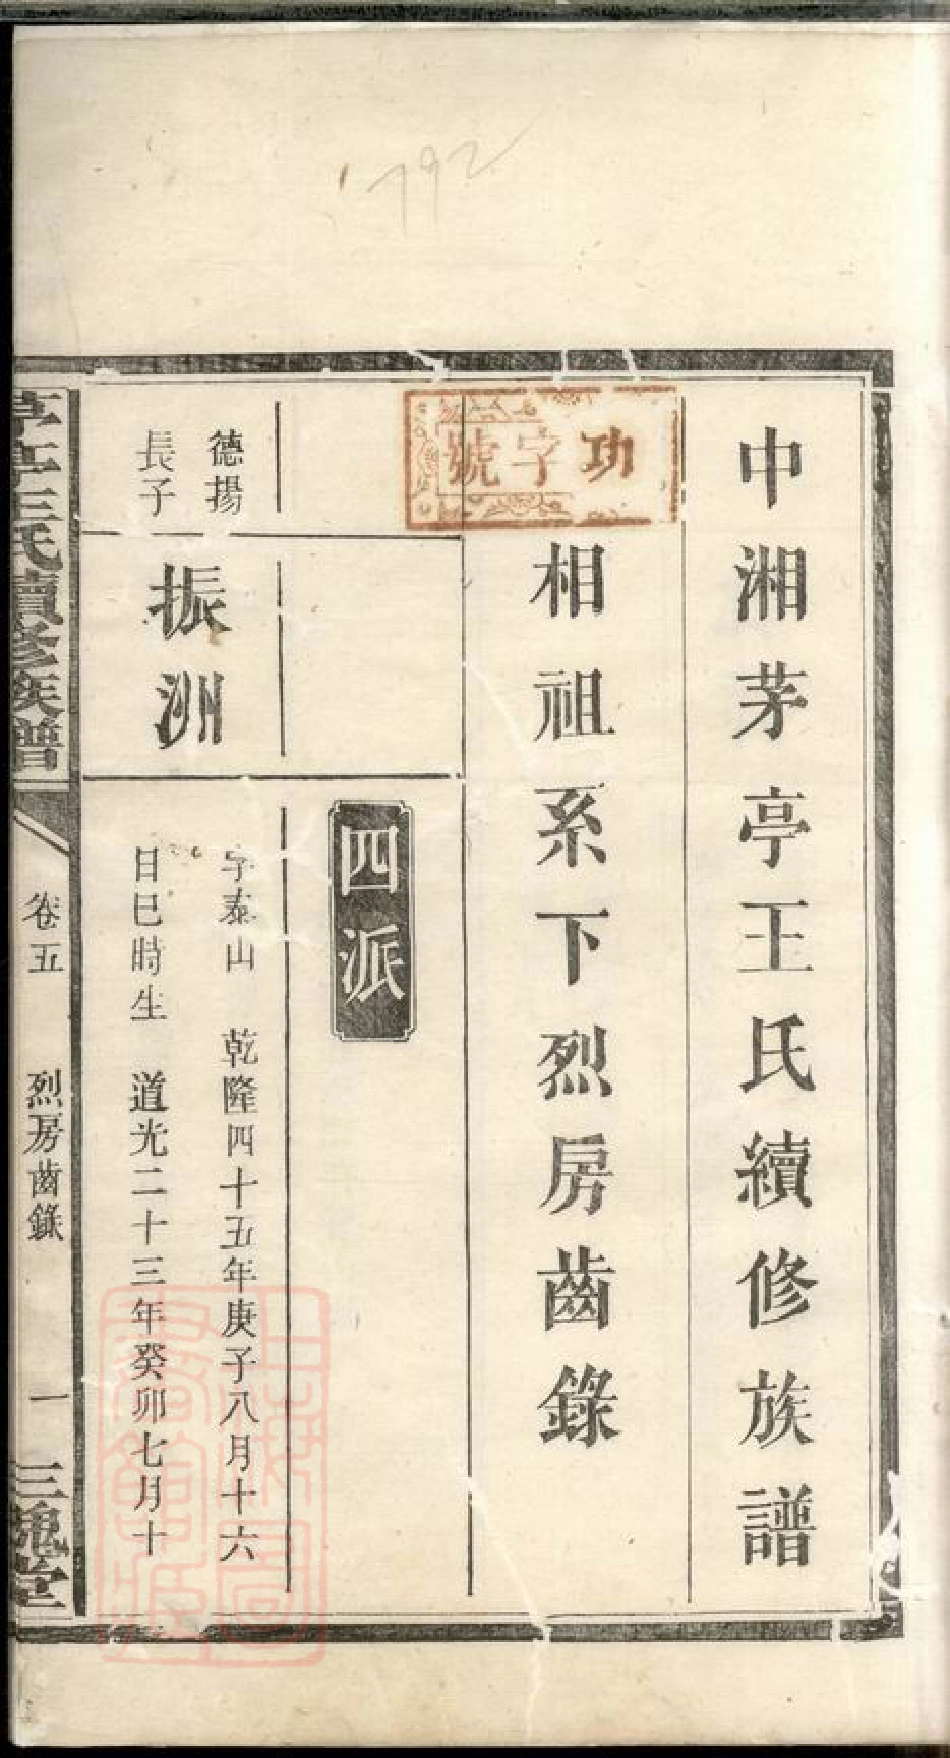 792
中湘茅亭王氏續修族譜
功字號
相祖系下烈房齒錄
四派
德揚
長子
振洲
字泰山 乾隆四十五年庚子八月十六
日巳時生 道光二十三年癸卯七月十
茅亭王氏續修族譜
卷五 烈房齒錄 一
三槐堂